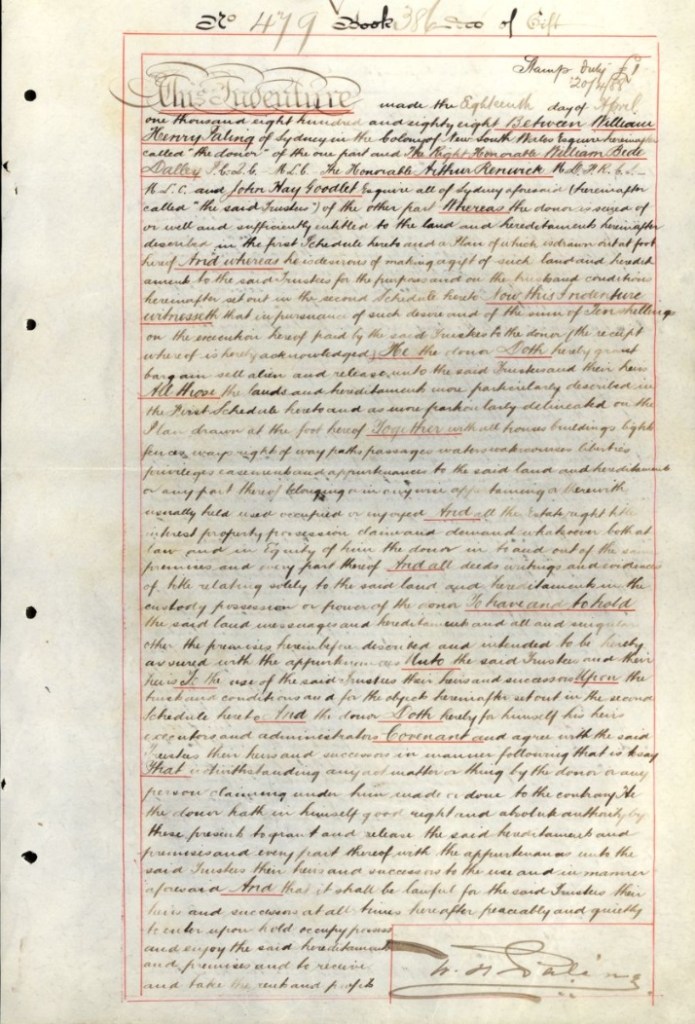 No 479 Book 386 of Gift
Stamp Duty £1
20/4/88
This Indenture made the Eighteenth day of April
one thousand eight hundred and eighty eight Between William
Henry Paling of Sydney in the Colony of New South Wales Esquire hereinafter
called "the donor" of the one part and The Right Honorable William Bede
Dalley P.C. Q.C. M.L.C. The Honorable Arthur Renwick M.D.
M.L.C. and John Hay Goodlet Esquire all of Sydney aforesaid (hereinafter
called "the said Trustees") of the other part Whereas the donor is seized of
or well and sufficiently entitled to the land and hereditaments hereinafter
described in the first Schedule hereto and a Plan of which is drawn out at foot
hereof And whereas he is desirous of making a gift of such land and heredit
aments to the said Trustees for the purposes and on the trusts and conditions
hereinafter set out in the second Schedule hereto Now this Indenture
witnesseth that in pursuance of such desire and of the sum of Ten shillings
on the execution hereof paid by the said Trustees to the donor (the receipt
whereof is hereby acknowledged) He the donor Doth hereby grant
bargain sell alien and release unto the said Trustees and their heirs
All those the lands and hereditaments more particularly described in
the First Schedule hereto and as more particularly delineated on the
Plan drawn at the foot hereof Together with all houses buildings lights
fences ways rights of way paths passages waters watercourses liberties
privileges easements and appurtenances to the said land and hereditaments
or any part thereof belonging or in any wise appertaining or therewith
usually held used occupied or enjoyed And all the Estate right title
interest property possession claim and demand whatsoever both at
law and in Equity of him the donor in to and out of the same
premises and every part thereof And all deeds writings and evidences
of title relating solely to the said land and hereditaments in the
custody possession or power of the donor To have and to hold
the said land messuages and hereditaments and all and singular
other the premises hereinbefore described and intended to be hereby
assured with the appurtenances Unto the said Trustees and their
heirs To the use of the said Trustees their heirs and successors Upon the
trusts and conditions and for the objects hereinafter set out in the second
Schedule hereto And the donor Doth hereby for himself his heirs
executors and administrators Covenant and agree with the said
Trustees their heirs and successors in manner following that is to say
That notwithstanding any act matter or thing by the donor or any
person claiming under him made or done to the contrary He
the donor hath in himself good right and absolute authority by
these presents to grant and release the said hereditaments and
premises and every part thereof with the appurtenances unto the
said Trustees their heirs and successors to the use and in manner
aforesaid And that it shall be lawful for the said Trustees their
heirs and successors at all times hereafter peaceably and quietly
to enter upon hold occupy possess
and enjoy the said hereditaments
and premises and to receive
and take the rents and profits
W. H. Paling